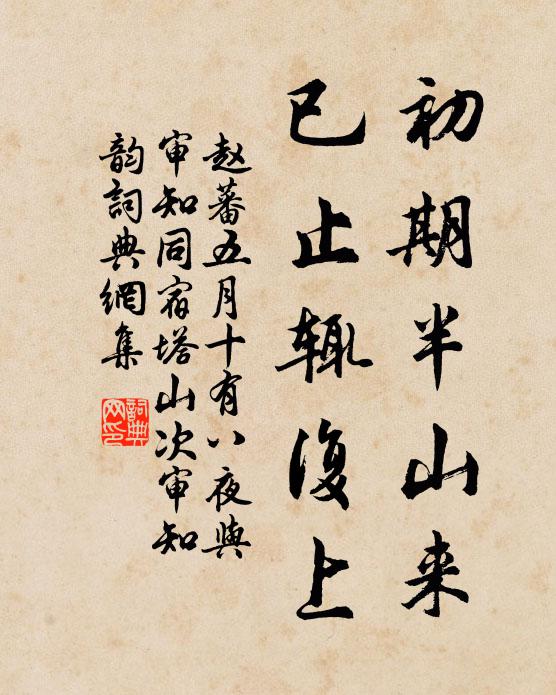 初期半山来
已止辄復上
赵蕃五月十有八夜與
审知同宿塔山次审知
韵詞典網集
詞典
网印